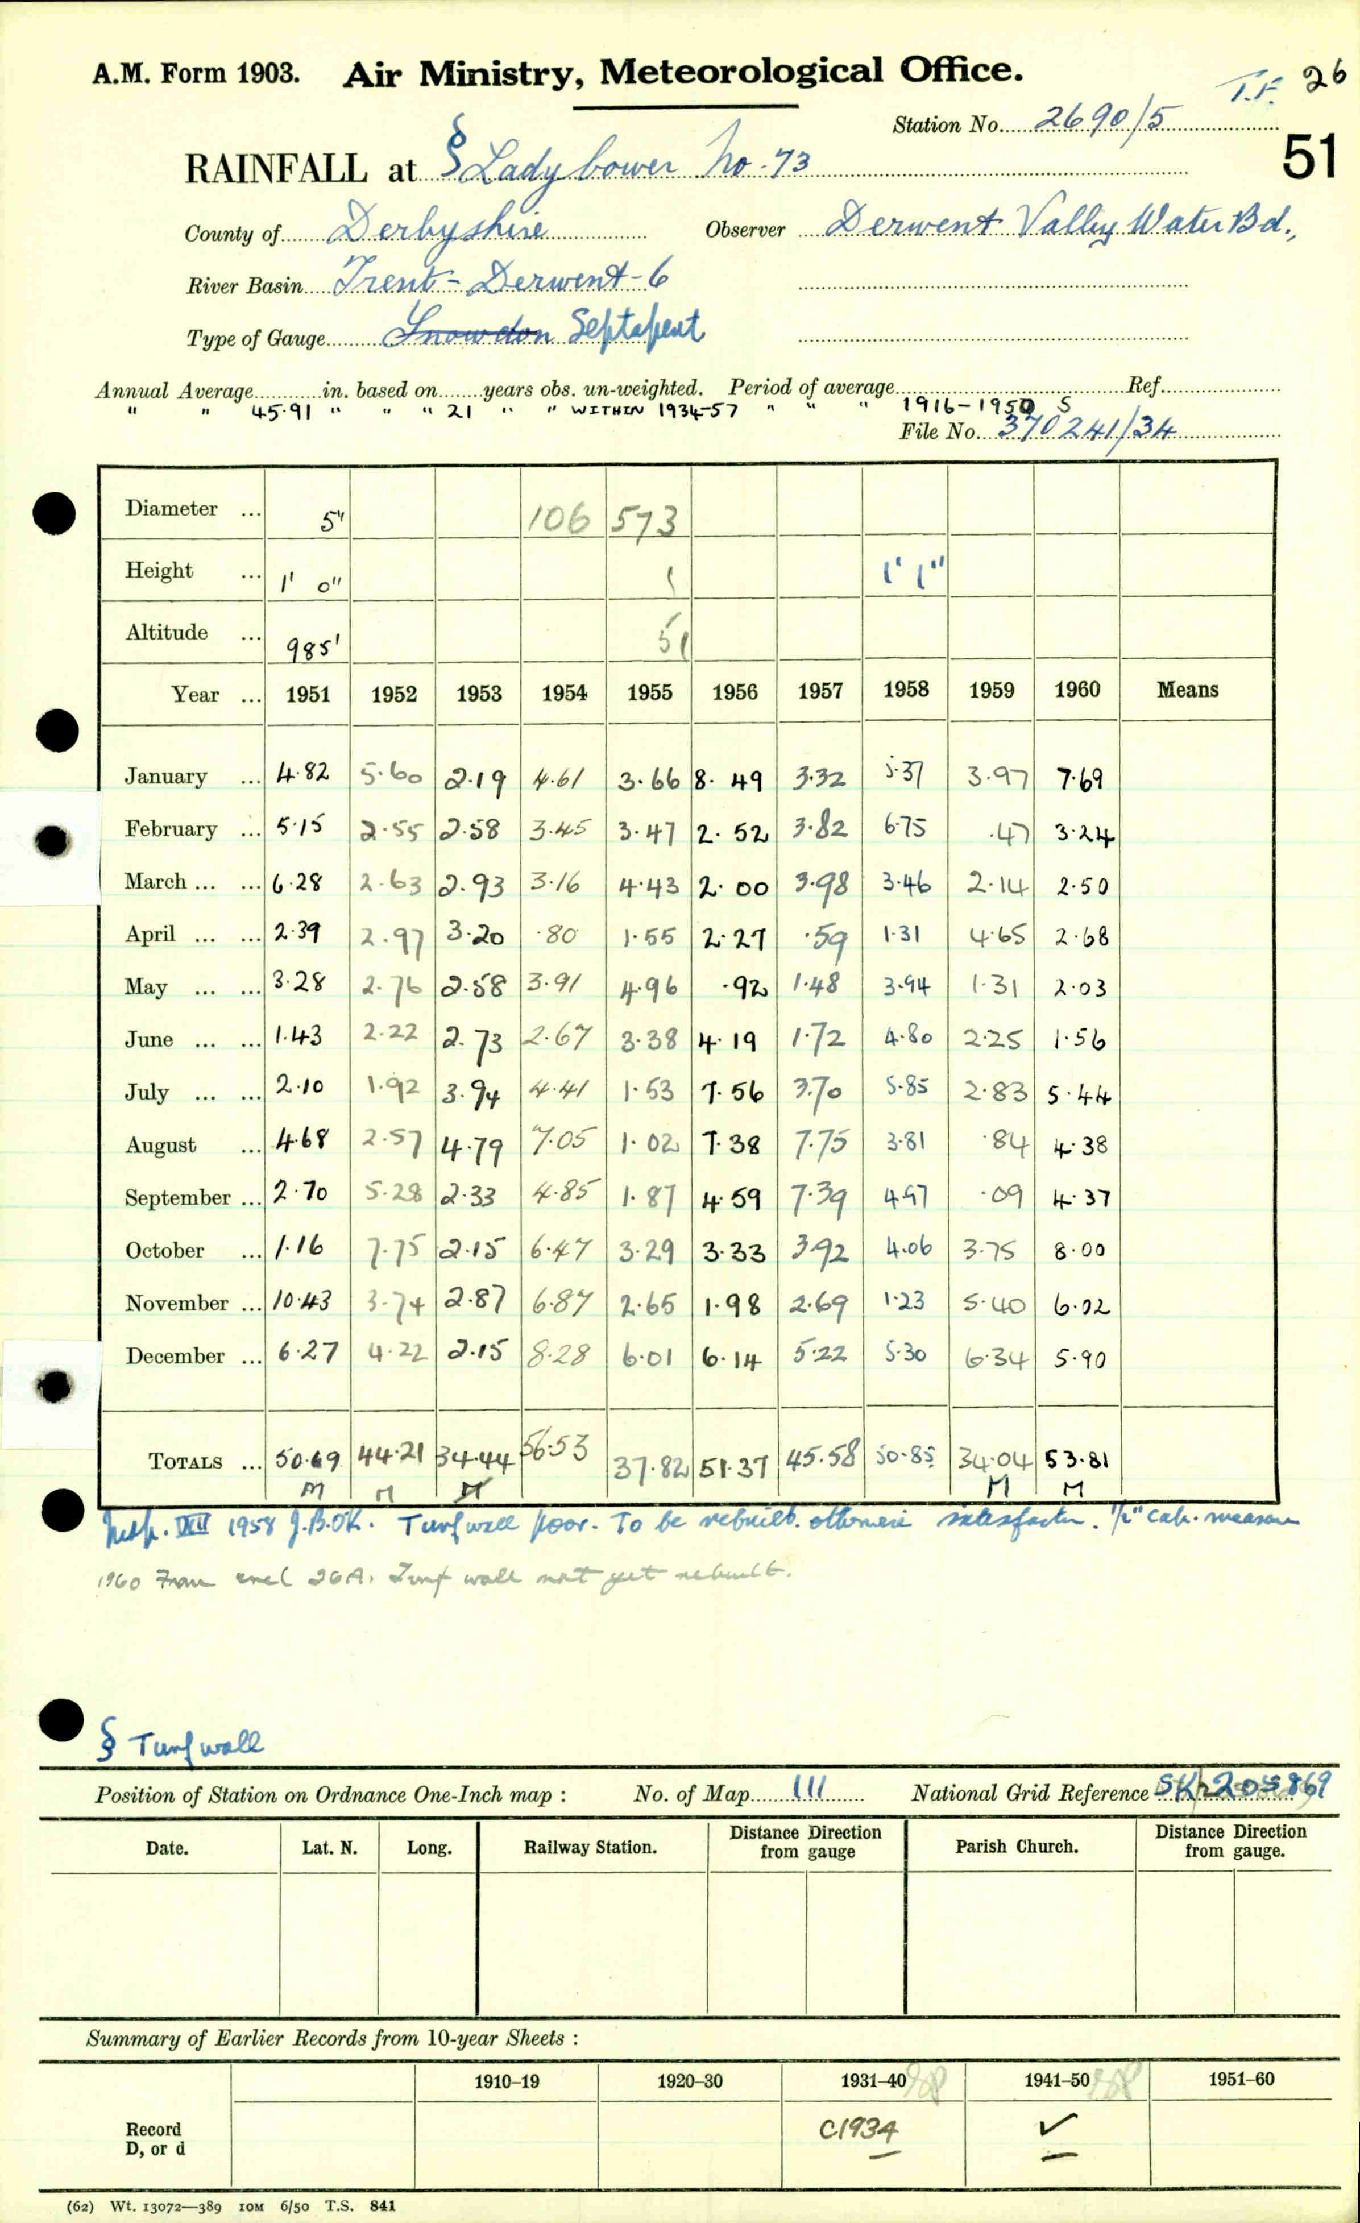 A.M. Form 1903. Air Ministry, Meteorological Office. T.F. 26
Station No. 2690/5
51
RAINFALL at § Ladybower No. 73
County of Derbyshire Observer Derwent Valley Water Bd.,
River Basin Trent - Derwent - 6
Type of Gauge Snowdon Septapent
Annual Average in. based on years obs. un-weighted. Period of average Ref.
" " 45.91 " " " 21 " " " WITHIN 1934-57 " " " 1916-1950 S
File No. 370241/34
Diameter ... 5" 106 573
Height ... 1' 0" 1 1' 1"
Altitude ... 985' 51
Year ... 1951 1952 1953 1954 1955 1956 1957 1958 1959 1960 Means
January ... 4.82 5.60 2.19 4.61 3.66 8.49 3.32 5.37 3.97 7.69
February ... 5.15 2.55 2.58 3.45 3.47 2.52 3.82 6.75 .47 3.24
March ... ... 6.28 2.63 2.93 3.16 4.43 2.00 3.98 3.46 2.14 2.50
April ... ... 2.39 2.97 3.20 .80 1.55 2.27 .59 1.31 4.65 2.68
May ... ... 3.28 2.76 2.58 3.91 4.96 .92 1.48 3.94 1.31 2.03
June ... ... 1.43 2.22 2.73 2.67 3.38 4.19 1.72 4.80 2.25 1.56
July ... ... 2.10 1.92 3.94 4.41 1.53 7.56 3.70 5.85 2.83 5.44
August ... 4.68 2.57 4.79 7.05 1.02 7.38 7.75 3.81 .84 4.38
September ... 2.70 5.28 2.33 4.85 1.87 4.59 7.39 4.97 .09 4.37
October ... 1.16 7.75 2.15 6.47 3.29 3.33 3.92 4.06 3.75 8.00
November ... 10.43 3.74 2.87 6.87 2.65 1.98 2.69 1.23 5.40 6.02
December ... 6.27 4.22 2.15 8.28 6.01 6.14 5.22 5.30 6.34 5.90
TOTALS ... 50.69 44.21 34.44 56.53 37.82 51.37 45.58 50.85 34.04 53.81
M M M M M
Insp. VIII 1958 J.B.OK. Turf wall poor. To be rebuilt. otherwise satisfactory. 1/2" cap. measure
1960 From encl 26A. Turf wall not yet rebuilt.
§ Turf wall
Position of Station on Ordnance One-Inch map : No. of Map 111 National Grid Reference SK 203869
Date. Lat. N. Long. Railway Station. Distance from Direction gauge Parish Church. Distance from Direction gauge.
Summary of Earlier Records from 10-year Sheets :
1910-19 1920-30 1931-40 1941-50 1951-60
Record
D, or d C1934 ✓
(62) Wt. 13072—389 10M 6/50 T.S. 841